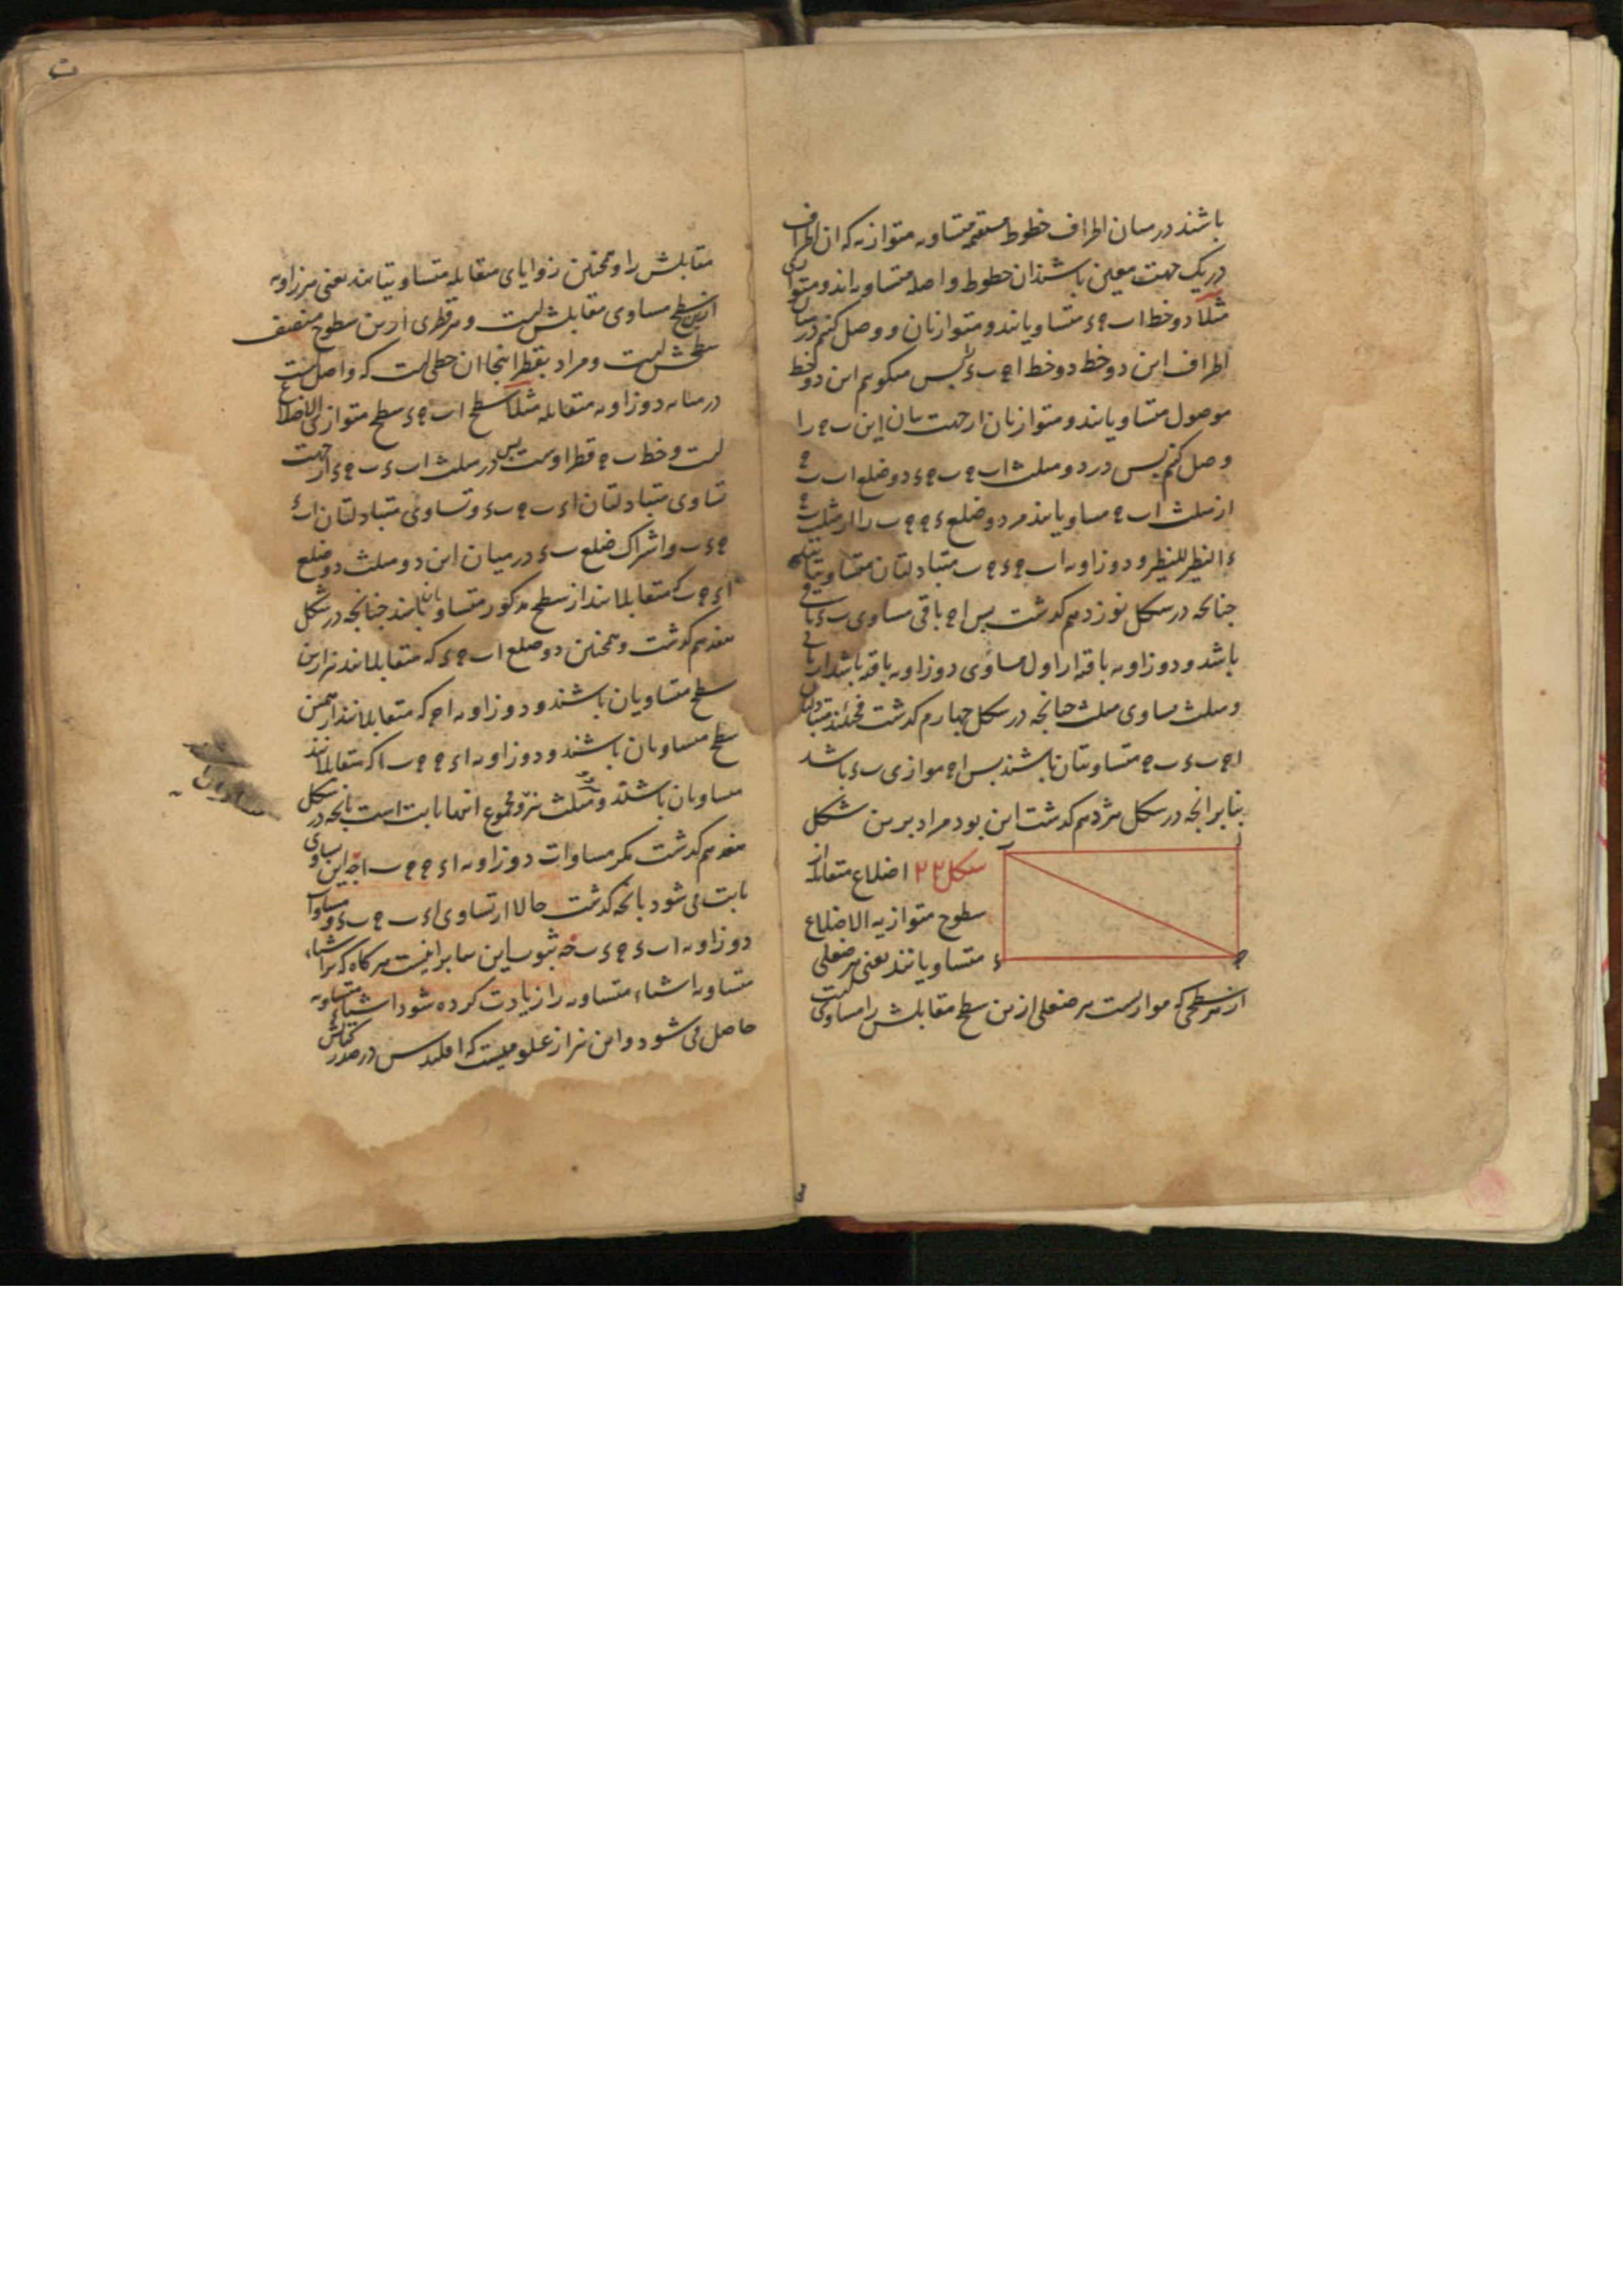 باشند در میان اطراف خطوط مستقیمه متساویه متوازیه که ان اطراف
در یک جهت معین باشند ان خطوط واصله متساویه اند و متوازی
مثلا دو خط اب ج‍ء متساویانند و متوازیان و وصل کنم در میان
اطراف این دو خط دو خط اج‍ ب‍ء پس میکویم این دو خط
موصول متساویانند و متوازیان از جهت بیان این ب‍ج‍ را
وصل کنم پس در دو مثلث اب‍ج‍ ب‍ج‍ء دو ضلع اب ب‍ج‍
از مثلث اب‍ج‍ مساویانند مر دو ضلع ءج‍ ج‍ب را از مثلث
النظیر للنظیر و دو زاویه اب‍ج‍ ءج‍ب متبادلتان متساویتانند
جنانجه در شکل نوزدهم کدشت پس اج‍ باقی مساوی ب‍ء باقی
باشد و دو زاویه باقیه از اول مساوی دو زاویه باقیه باشد از ثانی
و مثلث مساوی مثلث جنانجه در شکل جهارم کدشت فحینئذ متبادلتان
اج‍ب ءب‍ج‍ متساویتان باشند پس اج‍ موازی ب‍ء باشد
بنابر انجه در شکل هژدهم کدشت این بود مراد برین شکل
شکل ۲۲ اضلاع متقابله از
سطوح متوازیه الاضلاع
متساویانند یعنی هر ضلعی
از هر سطحی که موازیست هر ضلعی ازین سطح مقابلش را مساویست
ا
ب
ء
ج‍
مقابلش را و همجنین زوایای متقابله متساویتانند یعنی هر زاویه
ازین سطح مساوی مقابلش است و هر قطری ازین سطوح منصف
سطحش است و مراد بقطر اینجا ان خطی است که واصل است
در میانه دو زاویه متقابله مثلا سطح اب‍ج‍ء سطح متوازی الاضلاع
است و خط ب‍ج‍ قطر اوست پس در مثلث اب‍ء ب‍ج‍ء از جهت
تساوی متبادلتان اءب ج‍ب‍ء و تساوی متبادلتان اب‍ء
ج‍ءب و اشتراک ضلع ب‍ء در میان این دو مثلث دو ضلع
اء ج‍ب که متقابلانند از سطح مدکور متساویان باشند جنانجه در شکل
هفدهم کدشت و همجنین دو ضلع اب ج‍ء که متقابلانند نیز ازین
سطح متساویان باشند و دو زاویه اج‍ که متقابلانند از همین
سطح مساویان باشند و دو زاویه اءج‍ ج‍ب‍ا که متقابلانند
مساویان باشند و مثلث نیز و مجموع اینها ثابت است بانجه در شکل
هفدهم کدشت مکر مساوات دو زاویه اءج‍ ج‍ب‍ا جه این تساوی
ثابت می شود بانجه کدشت حالا از تساوی اءب ج‍ب‍ء و مساوات
دو زاویه اب‍ء ج‍ءب جه ثبوت این بنابر انیست هر کاه که بر اشیاء
متساویه اشیاء متساویه را زیادت کرده شود اشیاء متساویه
حاصل می شود و این نیز از علومیست که اقلیدس در صدر کتابش